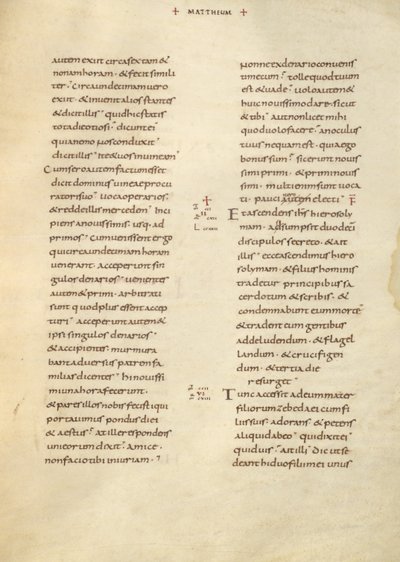 + MATTHEUM +
autem exiit circa sextam &
nonam horam · & fecit simili
ter · Circa undecimam vero
exiit · & invenit alios stantes
& dicit illis · quid hic statis
tota die otiosi · dicunt ei
quia nemo nos conduxit ·
dicit illis · ite & vos in vineam ·
Cum sero autem factum esset
dicit dominus vineae procu
ratori suo · voca operarios ·
& redde illis mercedem · Inci
piens a novissimis · usq· ad
primos · Cum venissent ergo
qui circa undecimam horam
venerant · acceperunt sin
gulos denarios · venientes
autem & primi · arbitrati
sunt quod plus essent accep
turi · acceperunt autem &
ipsi singulos denarios
& accipientes · murmura
bant adversus patrem fa
milias dicentes · hi novissi
mi una hora fecerunt ·
& pares illos nobis fecisti qui
portavimus pondus diei
& aestus · at ille respondens
uni eorum dixit · amice ·
non facio tibi iniuriam ·
nonne ex denario convenis
ti mecum · tolle quod tuum
est & vade · volo autem &
huic novissimo dare · sicut
& tibi · aut non licet mihi
quod volo facere · an oculus
tuus nequam est · quia ego
bonus sum · sic erunt novis
simi primi · & primi novis
simi · multi enim sunt voca
ti · pauci autem electi
Et ascendens ihs hierosoly
mam · adsumpsit duodeci
discipulos secreto · & ait
illis · ecce ascendimus hiero
solymam · & filius hominis
tradetur principibus sa
cerdotum & scribis · &
condemnabunt eum morte ·
& tradent eum gentibus
ad deludendum · & flagel
landum · & crucifigen
dum · & tertia die
resurget
Tunc accessit ad eum mater
filiorum zebedaei cum fi
liis suis · adorans · & petens
aliquid ab eo · qui dixit ei
quid vis · ait illi · dic ut se
deant hi duo filii mei unus